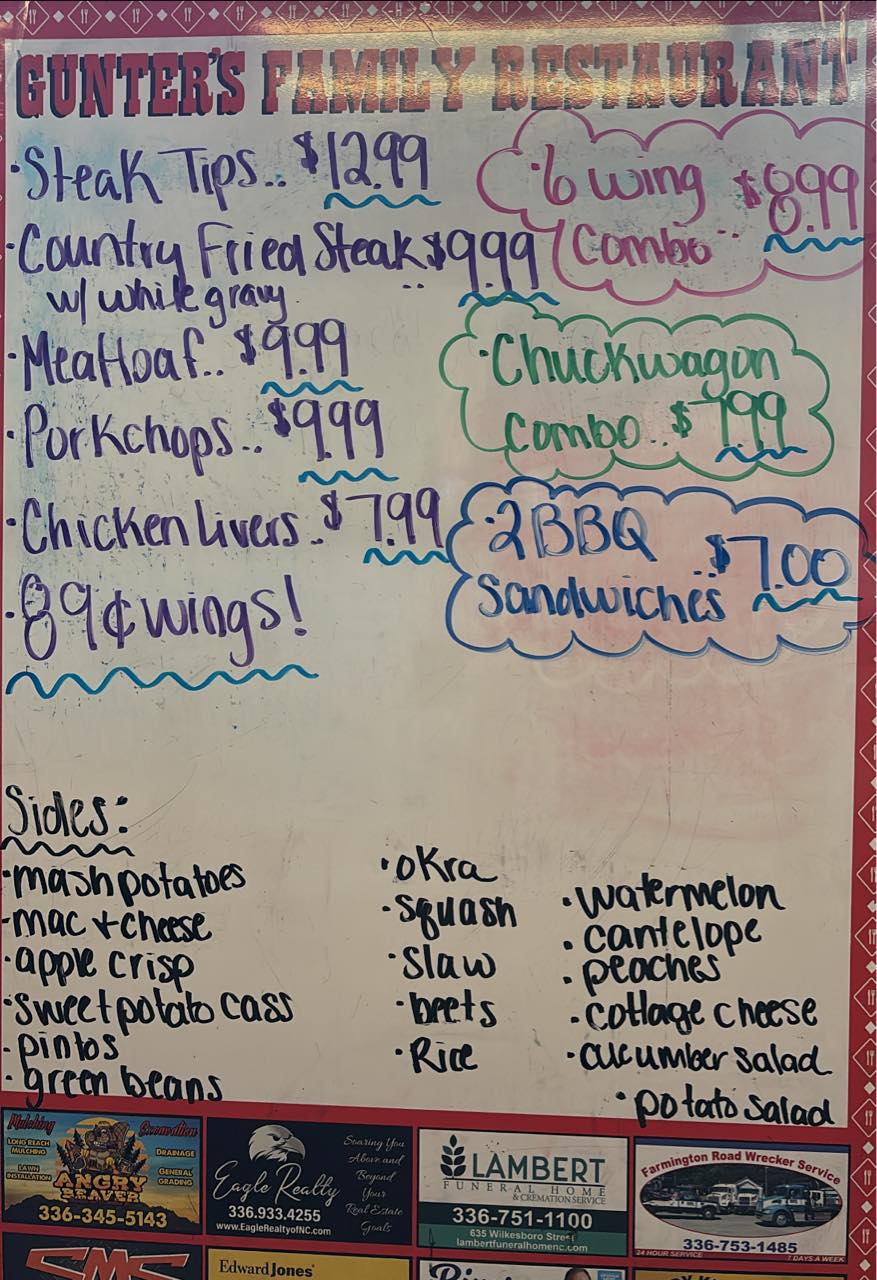 GUNTER'S FAMILY RESTAURANT
·Steak Tips.. $12.99
·Country Fried Steak.. $9.99
w/ white gravy
·Meatloaf.. $9.99
·Porkchops.. $9.99
·Chicken Livers.. $7.99
·89¢ wings!
·6 wing
Combo.. $8.99
·Chuckwagon
Combo.. $7.99
·2 BBQ
Sandwiches.. $7.00
Sides:
·mash potatoes
·mac + cheese
·apple crisp
·sweet potato cass
·pintos
·green beans
·okra
·squash
·slaw
·beets
·Rice
·watermelon
·cantelope
·peaches
·cottage cheese
·cucumber salad
·potato salad
Mulching
Excavation
LONG REACH
MULCHING
LAWN
INSTALLATION
DRAINAGE
GENERAL
GRADING
ANGRY
BEAVER
336-345-5143
Eagle Realty
336.933.4255
www.EagleRealtyofNC.com
Soaring You
Above and
Beyond
Your
Real Estate
Goals
LAMBERT
FUNERAL HOME
& CREMATION SERVICE
336-751-1100
635 Wilkesboro Street
lambertfuneralhomenc.com
Farmington Road Wrecker Service
336-753-1485
24 HOUR SERVICE
7 DAYS A WEEK
Edward Jones